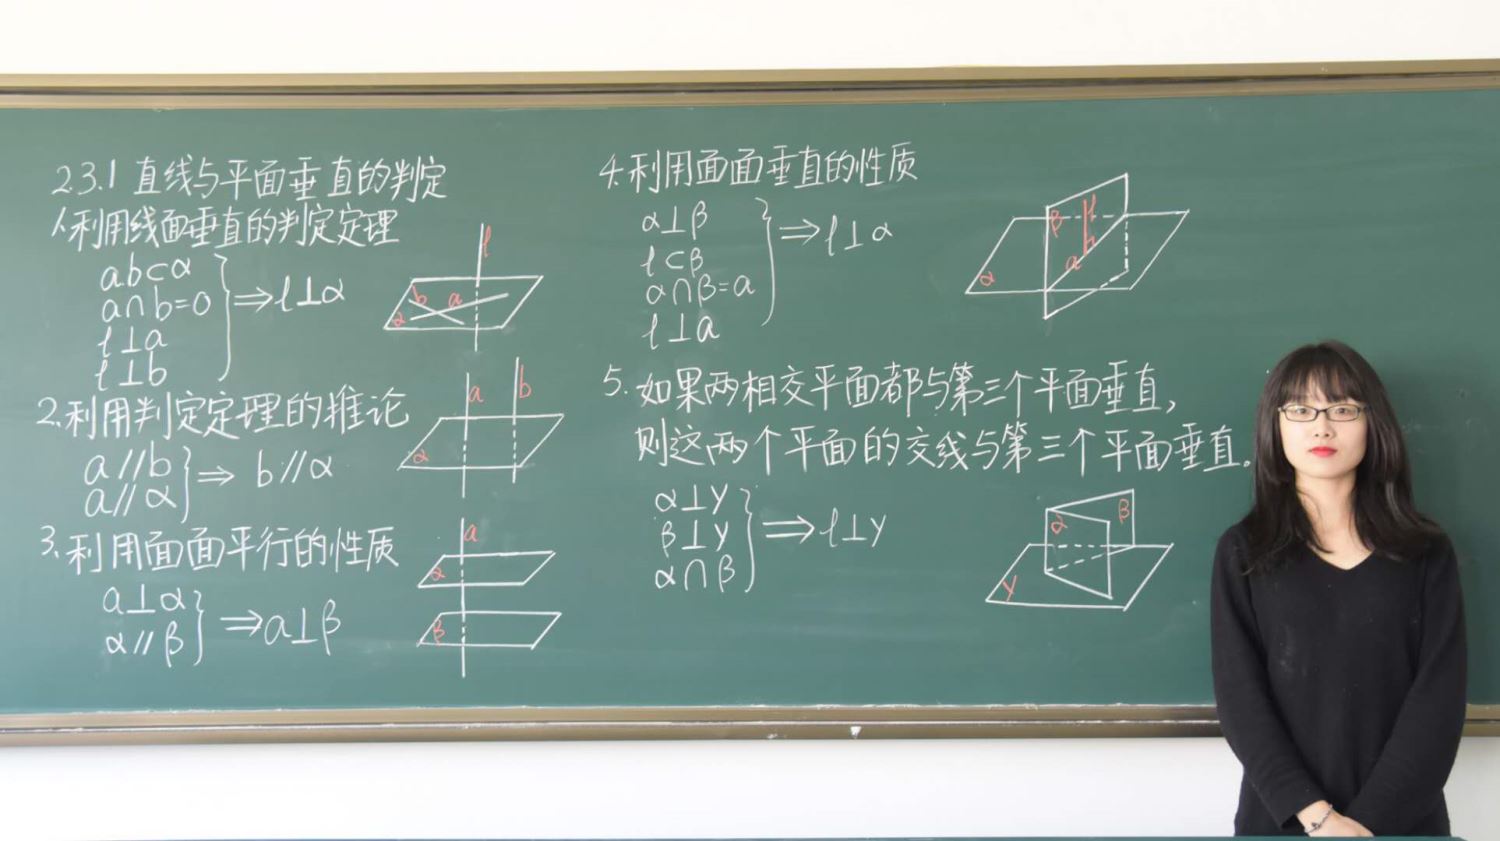 2.3.1 直线与平面垂直的判定
1.利用线面垂直的判定定理
a.b⊂α
a∩b=O
l⊥a
l⊥b
⇒l⊥α
l
b a
α
2.利用判定定理的推论
a∥b
a∥α
⇒ b∥α
a b
α
3.利用面面平行的性质
a⊥α
α∥β
⇒a⊥β
a
α
β
4.利用面面垂直的性质
α⊥β
l⊂β
α∩β=a
l⊥a
⇒l⊥α
β l
a
α
5.如果两相交平面都与第三个平面垂直,
则这两个平面的交线与第三个平面垂直。
α⊥γ
β⊥γ
α∩β
⇒l⊥γ
α β
γ